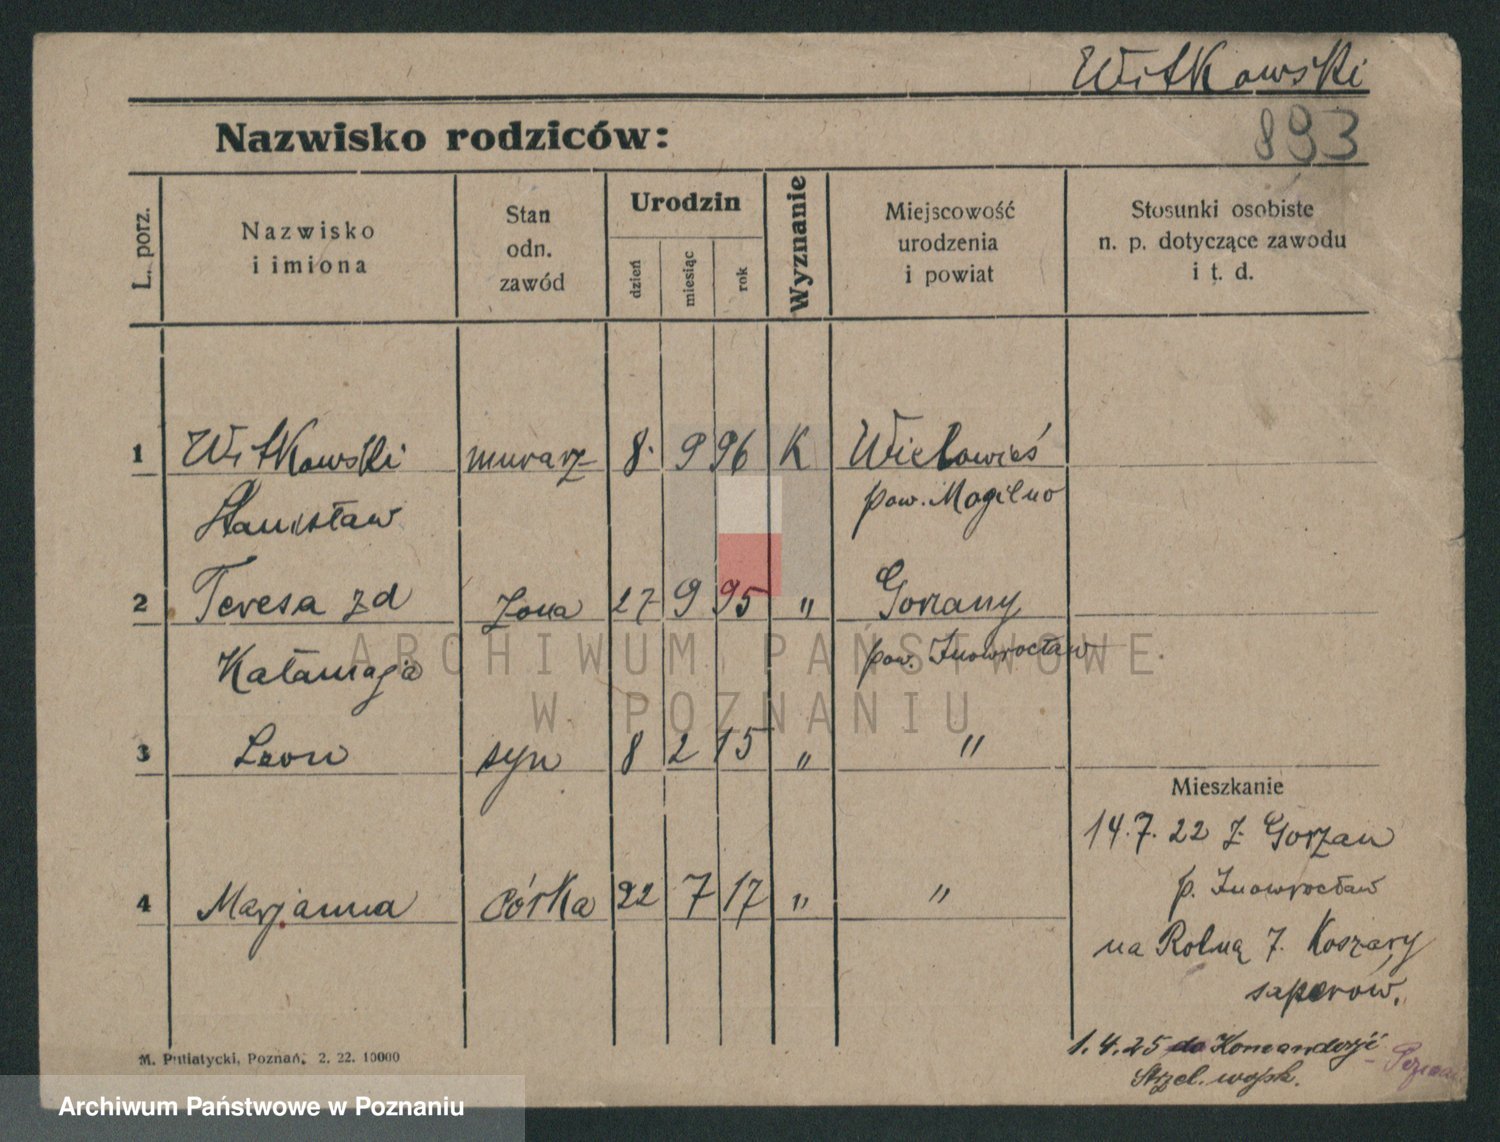 Witkowski
893
Nazwisko rodziców:
L. porz.
Nazwisko
i imiona
Stan
odn.
zawód
Urodzin
dzień
miesiąc
rok
Wyznanie
Miejscowość
urodzenia
i powiat
Stosunki osobiste
n. p. dotyczące zawodu
i t. d.
1 Witkowski murarz 8. 9 96 K Wielowieś
Stanisław pow. Mogilno
2 Teresa zd żona 27 9 95 " Gorzany
pow. Inowrocław
3 Leon syn 8 2 15 " "
Mieszkanie
14.7.22 z Gorzan
p. Inowrocław
4 Marjanna córka 22 7 17 " "
na Rolną 7. Koszary
saperów.
1.4.25 do
Strzel. wojsk.
M. Putiatycki, Poznań, 2. 22. 10000
ARCHIWUM PAŃSTWOWE
W POZNANIU
Archiwum Państwowe w Poznaniu